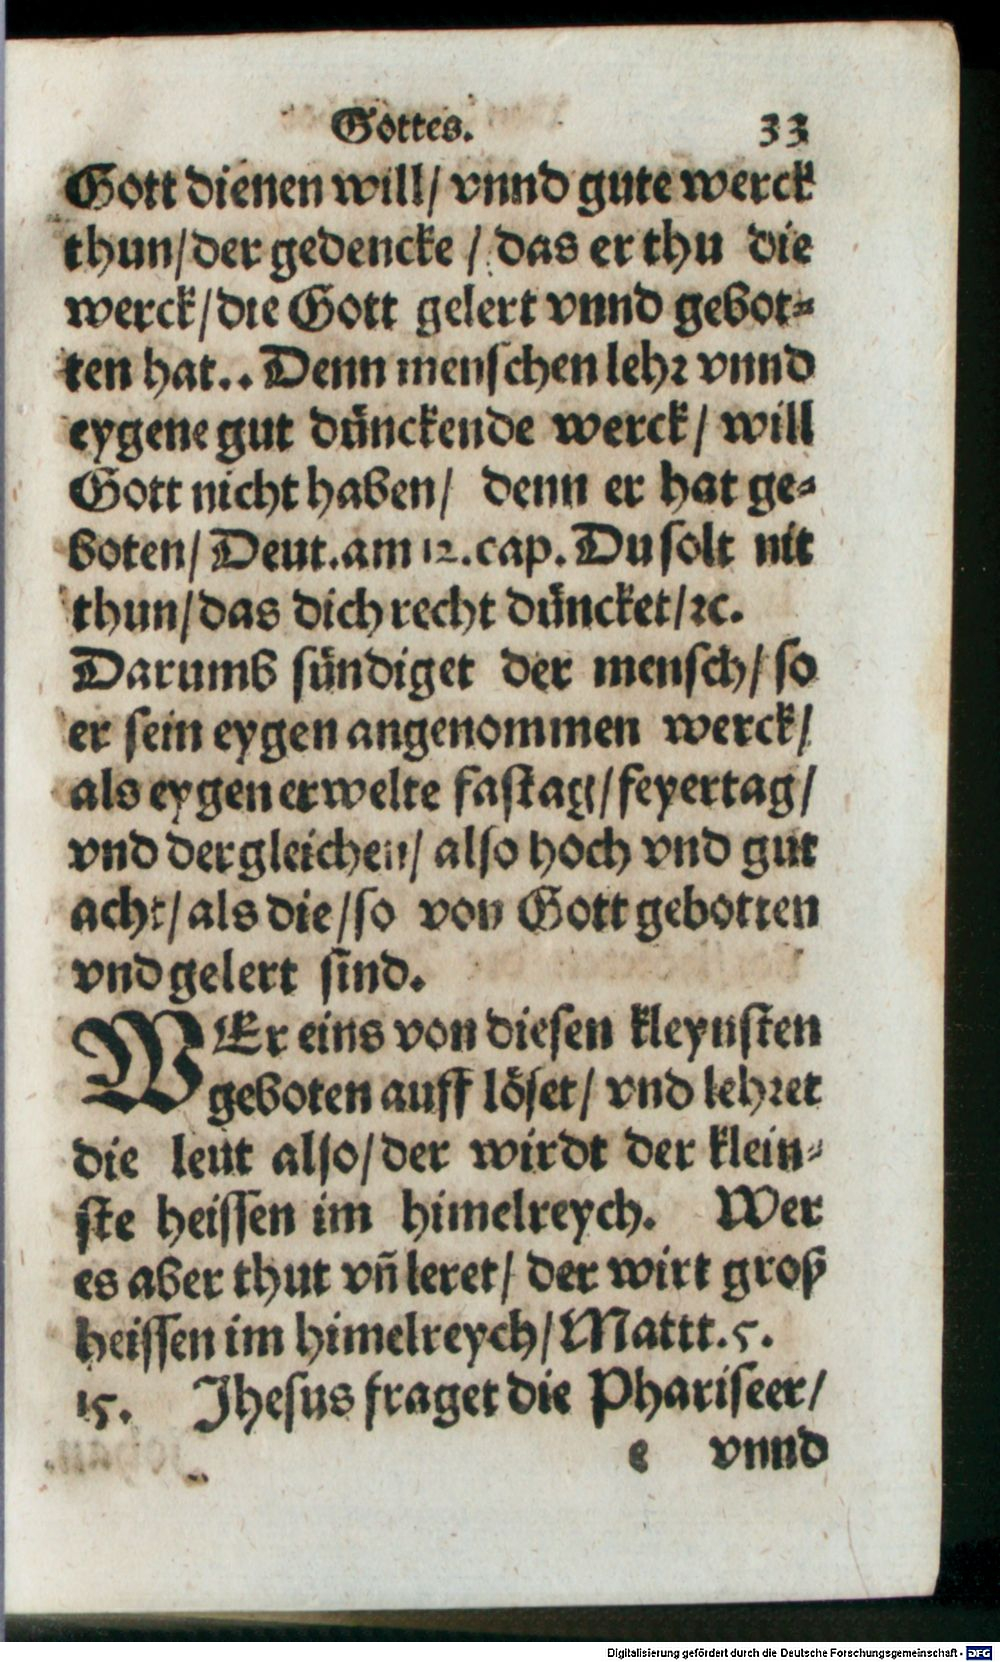 Gottes. 33
Gott dienen will/ vnnd gute werck
thun/ der gedencke / das er thu die
werck/ die Gott gelert vnnd gebot⸗
ten hat.. Denn menschen lehr vnnd
eygene gut dünckende werck/ will
Gott nicht haben/ denn er hat ge⸗
boten/ Deut. am 12. cap. Du solt nit
thun/ das dich recht düncket/ ꝛc.
Darumb sündiget der mensch/ so
er sein eygen angenommen werck/
als eygen erwelte fastag/ feyertag/
vnd dergleichen/ also hoch vnd gut
acht/ als die/ so von Gott gebotten
vnd gelert sind.
WEr eins von diesen kleynsten
geboten auff löset/ vnd lehret
die leut also/ der wirdt der klein⸗
ste heissen im himelreych. Wer
es aber thut vñ leret/ der wirt groß
heissen im himelreych/ Mattt. 5.
15. Jhesus fraget die Phariseer/
e vnnd
Digitalisierung gefördert durch die Deutsche Forschungsgemeinschaft - DFG